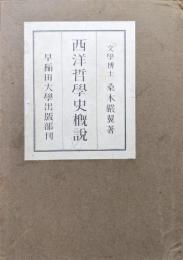 文學博士 桑木嚴翼著
西洋哲學史概說
早稲田大學出版部刊